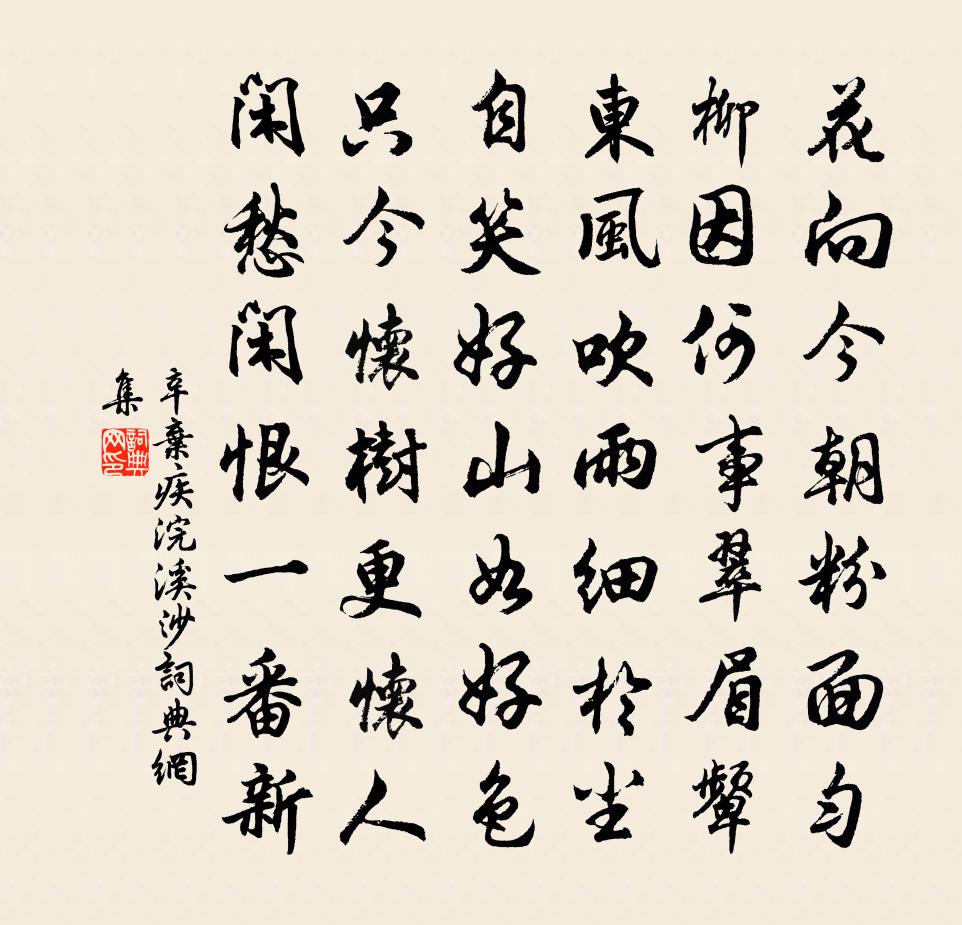 花向今朝粉面勻
柳因何事翠眉顰
東風吹雨細於塵
自笑好山如好色
只今懷樹更懷人
閑愁閑恨一番新
辛棄疾浣溪沙詞典網
集
詞典網印